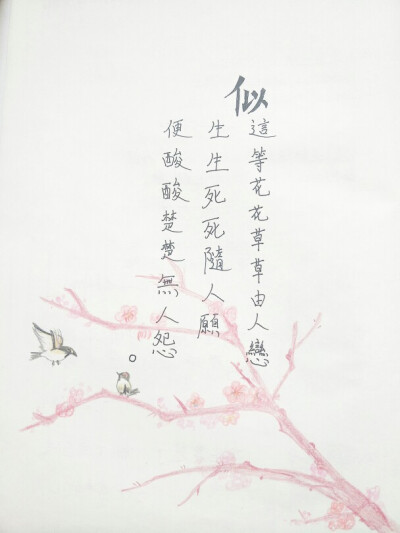 似
這等花花草草由人戀
生生死死隨人願
便酸酸楚楚無人怨。